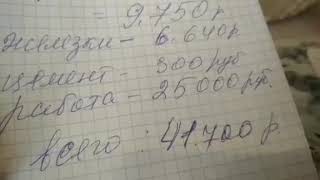 = 9.750 р
железки - 6.640 р
цемент - 300 руб
работа - 25000 рб.
всего : 41.700 р